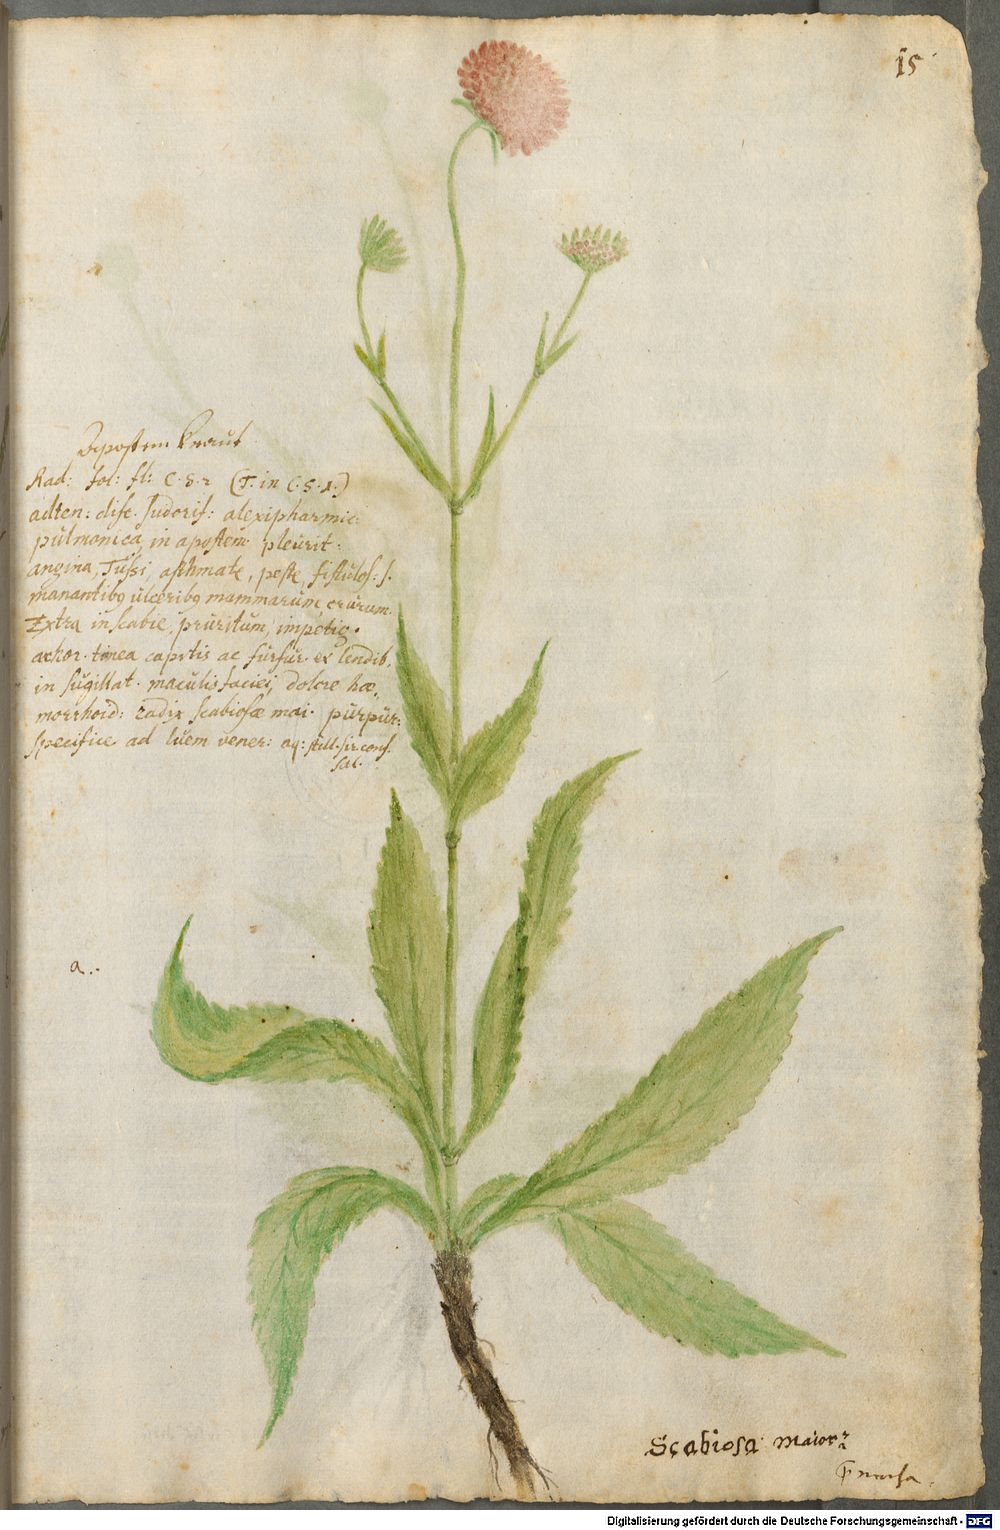 15
Apostem kraut
Rad: fol: fl: C. S. 2 (T. in C. S. 1.)
atten: disc. sudorif: alexipharmic:
pulmonica, in apostem: pleurit:
angina, Tussi, asthmate, peste, fistulos: s.
manantibq ulceribq mammarum crurum.
Extra in scabie, pruritum, impetig.
achor. tinea capitis ac furfur. ex lendib.
in sugillat. maculis faciei, dolore hæ,
morrhoid: radix scabiosæ mai. purpur:
specifice ad luem vener: aq: still. sir. cons.
sal.
a..
Scabiosa maior
Digitalisierung gefördert durch die Deutsche Forschungsgemeinschaft - DFG